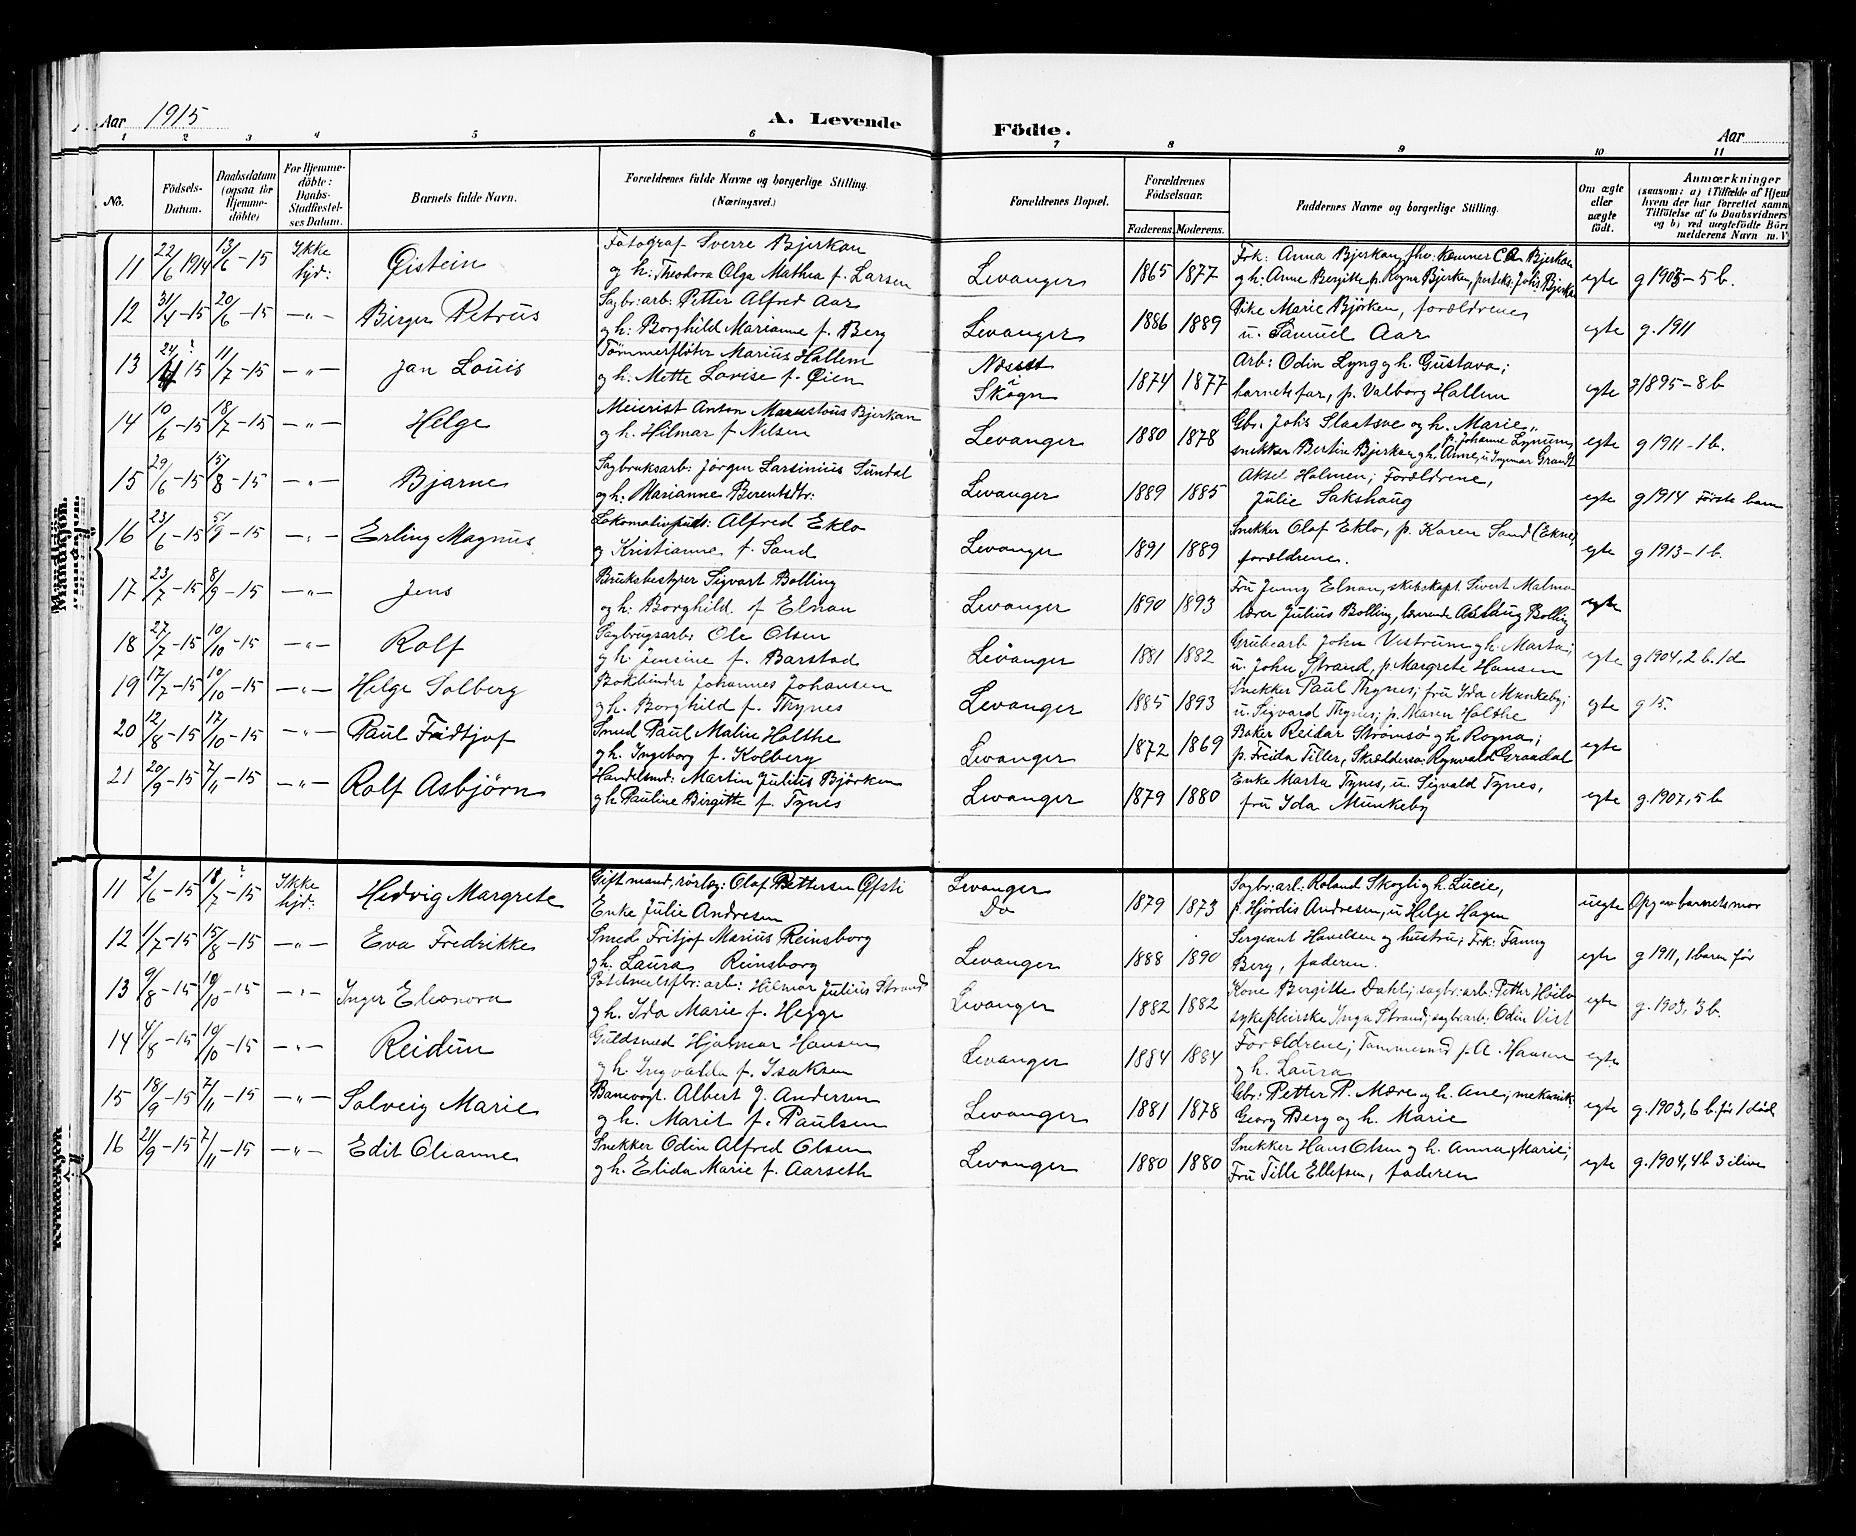 Aar 1915 A. Levende Födte. Aar
1 2 3 4 5 6 7 8 9 10 11
No. Födsels-Datum. Daabsdatum (ogsaa for Hjemme-döbte) For Hjemme-döbte: Daabs-Stadfæstel-ses Datum. Barnets fulde Navn. Forældrenes fulde Navne og borgerlige Stilling. (Næringsvei.) Forældrenes Bopæl. Forældrenes Födselsaar. Faderens. Moderens. Faddernes Navne og borgerlige Stilling. Om ægte eller uægte födt. Anmærkninger
(saasom: a) i Tilfælde af Hjem
hvem der har forrettet samm
Tilföielse af to Daabsvidners
og b) ved uegtefödte Börn
melderens Navn m. V
Mandkjøn
11 22/6 1914 13/6 - 15 Ikke hjd: Øistein Fotograf Sverre Bjerkan
og h: Theodora Olga Mathea f. Larsen Levanger 1865 1877 Frk: Anna Bjerkan, fhv. Kæmner C A Bjerkan
og h: Anne Bergitte, p. Ragna Bjerken, porteks: Johs Bjerka egte g 1905 - 5 b.
12 31/4 - 15 20/6 - 15 - " - Birger Petrus Sagbr: arb: Petter Alfred Aar
og h: Borghild Marianne f. Berg Levanger 1886 1889 Pike Marie Björken, forældrene
u. Samuel Aar egte g. 1911
13 24/4 ? 15 11/7 - 15 - " - Jan Louis Tömmerfløter Marius Hallem
og h. Mette Lovise f. Øien Næsset i Skogn 1874 1877 Arb: Odin Lyng og h. Gustava;
barnets far, p. Valborg Hallem egte g 1895 - 8 b
14 10/6 - 15 18/7 - 15 - " - Helge Meierist Anton Bjerkan
og h. Hilmar f. Nilsen Levanger 1880 1878 Gbr. Johs Slaatsve og h. Marie,
p. Johanne Lynum,
snekker Bertin Bjerkan og h. Anne, u. Ingemar Grandt egte g 1911 - 1 b.
15 29/6 - 15 15/8 - 15 - " - Bjarne Sagbruksarb: Jørgen Larsinius Sundal
og h: Marianne Berentsdtr: Levanger 1889 1885 Aksel Holmen; Forældrene,
Julie Sakshaug egte g 1914 første barn
16 23/6 - 15 5/9 - 15 - " - Erling Magnus Lokomativpuds: Alfred Eklo
og Kristianne f. Sand Levanger 1891 1889 Snekker Olaf Eklo, p. Karen Sand (Ekne)
forældrene. egte g 1913 - 1 b.
17 23/7 - 15 8/9 - 15 - " - Jens Bruksbestyrer Sigvart Bolling
og h: Borghild f Elnan Levanger 1890 1893 Fru Jenny Elnan, skibskapt. Sivert Malmo
lærer Julius Bolling, lærerinde Aaslaug Bolling egte
18 27/7 - 15 10/10 - 15 - " - Rolf Sagbrugsarb: Ole Olsen
og h. Jensine f. Barstad Levanger 1881 1882 Grubearb. John Vestrum og h. Marta;
u. John Strand, p. Margrete Hansen egte g 1904, 2 b. 1 d
19 17/7 - 15 10/10 - 15 - " - Helge Solberg Bokbinder Johannes Johansen
og h. Borghild f. Thynes Levanger 1885 1893 Snekker Paul Thynes; fru Ida Munkeby;
u. Sigvard Thynes; p. Maren Holthe egte g 15.
20 12/8 - 15 17/10 - 15 - " - Paul Fridtjof Smed Paul Malin Holthe
og h. Ingeborg f. Kolberg Levanger 1872 1869 Baker Reidar Strømsø og h. Ragna;
p. Freida Tiller, Skrædersv: Rognvald Grandal egte
21 20/9 - 15 7/11 - 15 - " - Rolf Asbjørn Handelsmd: Martin Julius Bjørken
og h Pauline Birgitte f. Tynes Levanger 1879 1880 Enke Marta Tynes, u. Sigvald Tynes,
fru Ida Munkeby egte g. 1907, 5 b
Kvindekjøn
11 2/6 - 15 18/7 ? - 15 Ikke hjd: Hedvig Margrete Gift mand, rørlæg: Olaf Pettersen Øfsti
Enke Julie Andresen Levanger
Do 1879 1873 Sagbr: arb: Roland Skogli og h. Lucie,
p. Hjördis Andresen, u Helge Hagen uegte Opg av barnets mor
12 1/7 - 15 15/8 - 15 - " - Eva Fredrikke Smed Fritjof Marius Reinsborg
og h. Laura Reinsborg Levanger 1888 1890 Sergeant Havelsen og hustru; Frk: Fanny
Berg, faderen. egte g 1911, 1 barn før
13 9/8 - 15 10/10 - 15 - " - Inger Eleonora Potetmelsfbr: arb: Hilmar Julius Strand
og h. Ida Marie f. Hegge Levanger 1882 1882 Kone Bergitte Dahl; sagbr: arb: Petter Høilo
sykepleierske Inga Strand; sagbr: arb: Odin Vist egte g. 1903, 3 b.
14 4/8 - 15 10/10 - 15 - " - Reidun Guldsmed Hjalmar Hansen
og h. Ingvalda f. Isaksen Levanger 1884 1884 Forældrene; Tømmermd J. A. Hansen
og h. Laura egte
15 18/9 - 15 7/11 - 15 - " - Solveig Marie Banevogt. Albert J. Andersen
og h. Marit f. Paulsen Levanger 1881 1878 Gbr: Petter P. Mære og h. Ane; mekanik:
Georg Berg og h. Marie egte g. 1903, 6 b. før 1 død
16 21/9 - 15 7/11 - 15 - " - Edit Oleanne Snekker Odin Alfred Olsen
og h. Elida Marie f. Aarseth Levanger 1880 1880 Snekker Hans Olsen og h. Anna Marie;
Fru Tille Ellefsen, faderen egte g. 1904, 4 b 3 ilive